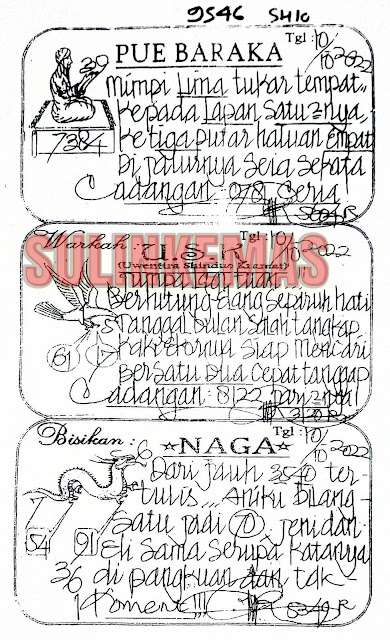 9546 SH10
PUE BARAKA Tgl : 10/10 2022
Mimpi Lima tukar tempat,,
Kepada Lapan Satu2nya,
Ketiga putar haluan empat
7384
Di aturnya Seia Sekata
Cadangan : 078 Ceria
5604 R
Warkah : U.S.R Tgl : 10/10 2022
(Uwentira Skindue Kramat)
SULTKEMAS
Berhitung Elang Separuh hati
Tanggal bulan Salah tangkap
61 17
Kaki Ekornya Siap Mencari
Bersatu Dua Cepat tanggap
Cadangan : 8122
Bisikan : NAGA Tgl : 10/10 2022
6
Dari Jauh 3540 ter
tulis... Aniku bilang
Satu Jadi 70. Jeni dan
54 91
Eli Sama Serupa Katanya
36 di pangkuan dan tak
1 Koment,,!!
5349 R